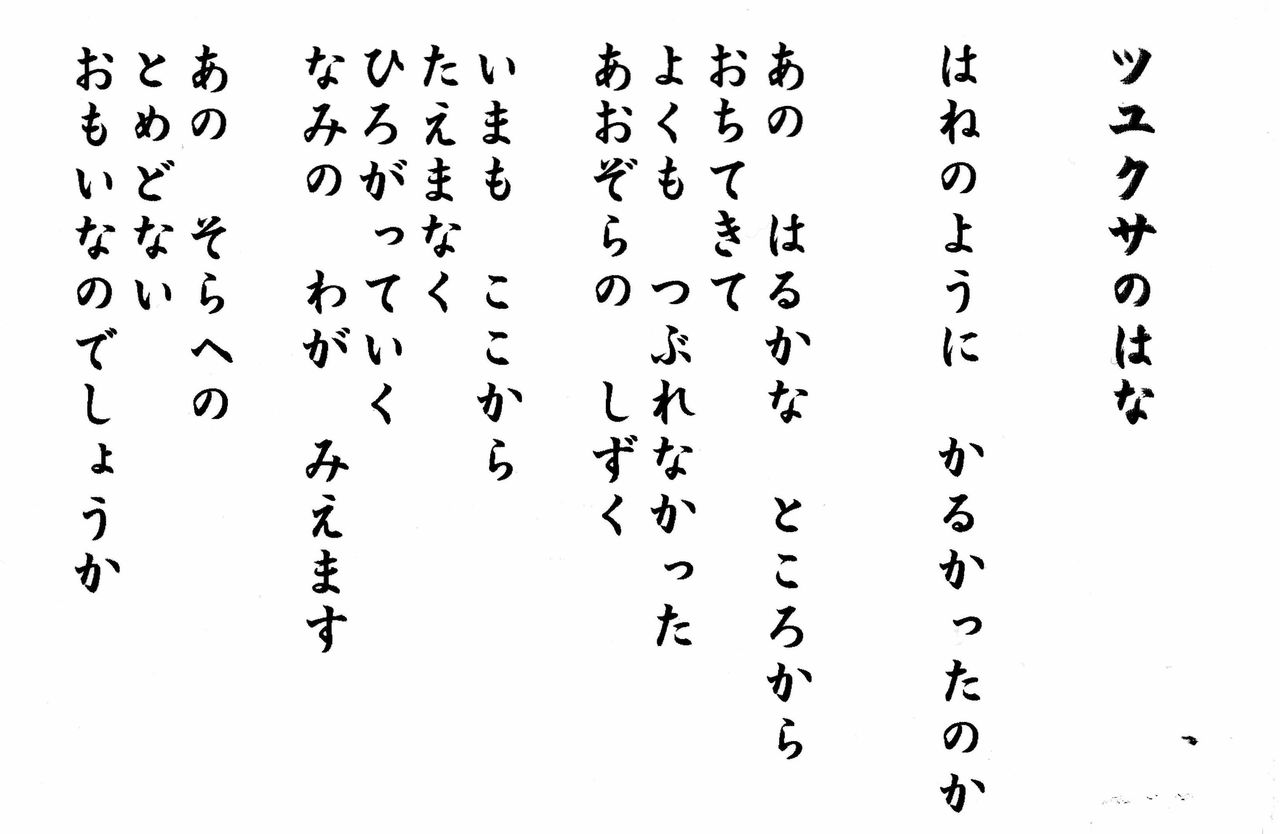 ツユクサのはな
はねのように　かるかったのか
あの　はるかな　ところから
おちてきて
よくも　つぶれなかった
あおぞらの　しずく
いまも　ここから
たえまなく
ひろがっていく
なみの　わが　みえます
あの　そらへの
とめどない
おもいなのでしょうか